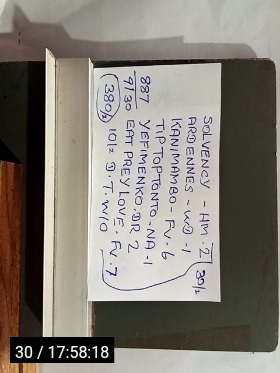 SOLVENCY - HM. 2
ARDENNES - WD - 1
KANIMAMBO - FV. 6
TIP TOP TONTO - NA - 1
887 YEFIMENKO. DR 2
9130 EAT PREY LOVE. FV. 7
380/2 10/2 D. T. W/O
30/2
30 / 17:58:18